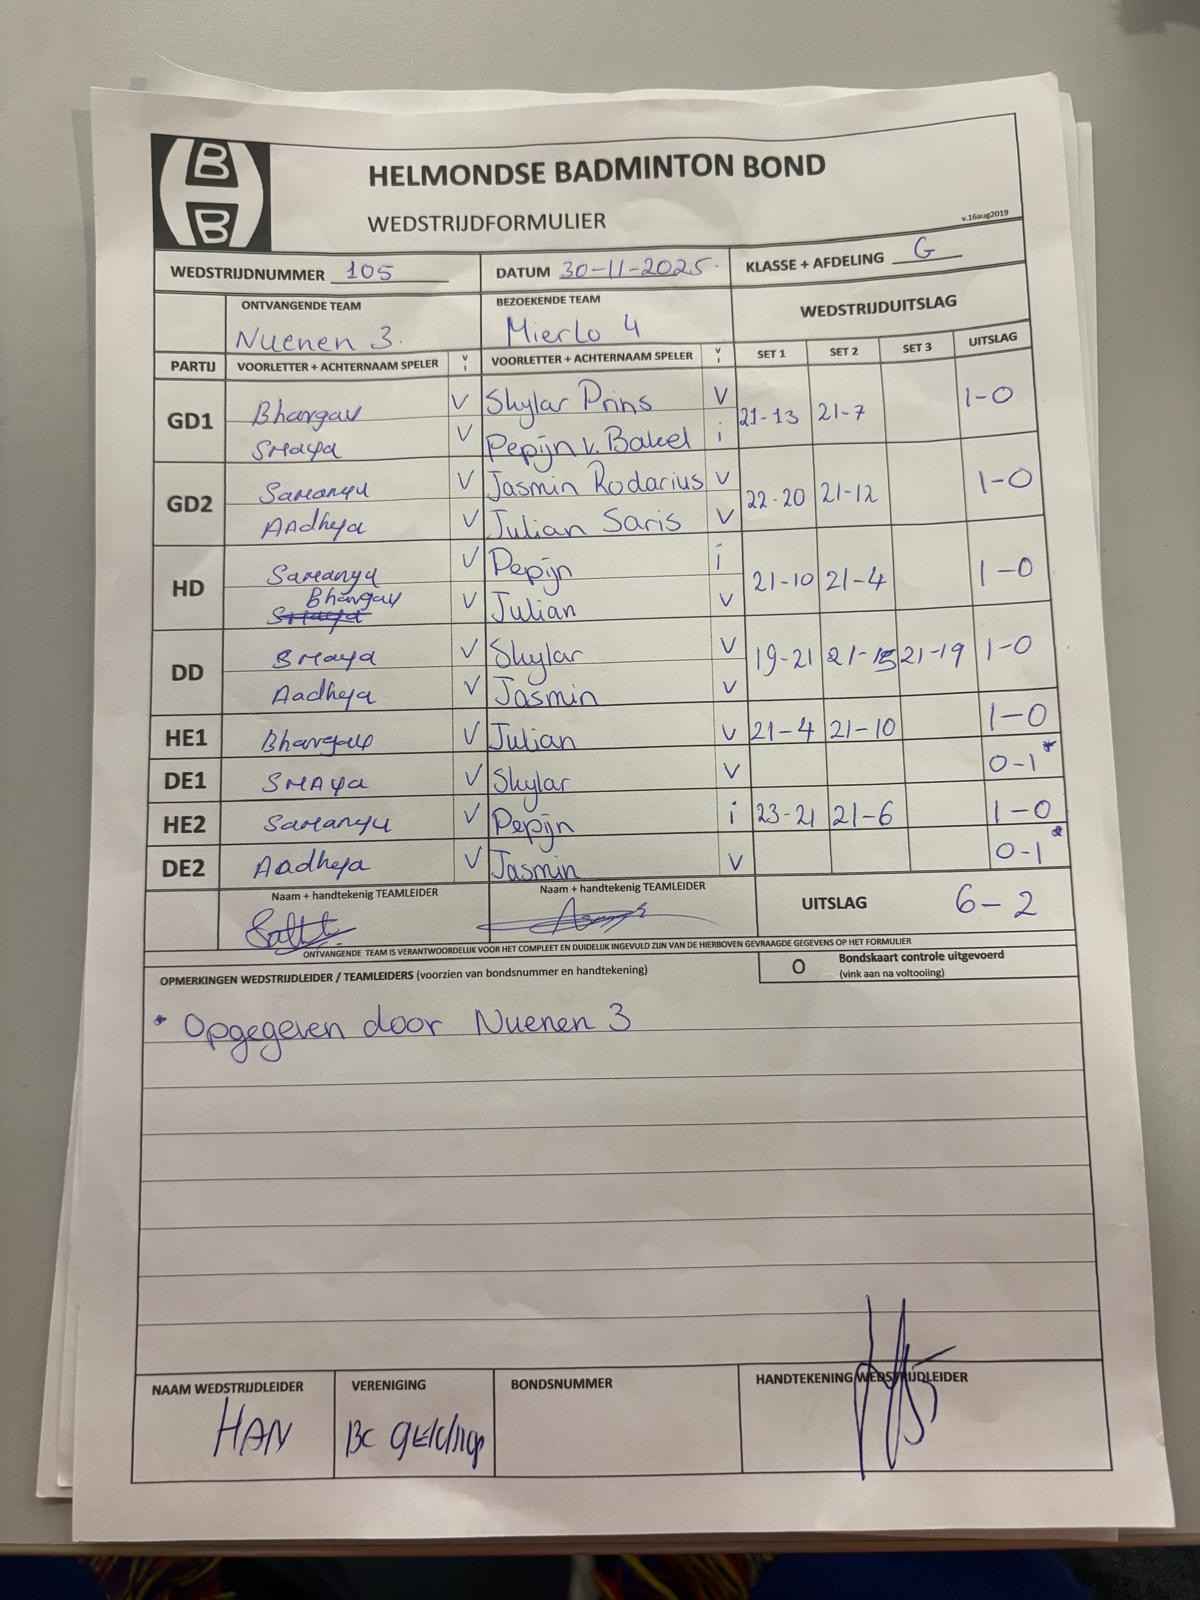 B
B
HELMONDSE BADMINTON BOND
WEDSTRIJDFORMULIER
v.16aug2019
WEDSTRIJDNUMMER 105 DATUM 30-11-2025. KLASSE + AFDELING G
ONTVANGENDE TEAM BEZOEKENDE TEAM WEDSTRIJDUITSLAG
Nuenen 3. Mierlo 4
PARTIJ VOORLETTER + ACHTERNAAM SPELER V I VOORLETTER + ACHTERNAAM SPELER V I SET 1 SET 2 SET 3 UITSLAG
GD1 Bhargav V Skylar Prins V 21-13 21-7 1-0
SMaya V Pepijn v. Bakel i
GD2 Samanyu V Jasmin Rodarius V 22-20 21-12 1-0
Aadheya V Julian Saris V
HD Samanyu V Pepijn i 21-10 21-4 1-0
Bhargav V Julian V
DD SMaya V Skylar V 19-21 21-15 21-19 1-0
Aadheya V Jasmin V
HE1 Bhargav V Julian V 21-4 21-10 1-0
DE1 SMAya V Skylar V 0-1*
HE2 Samanyu V Pepijn i 23-21 21-6 1-0
DE2 Aadheya V Jasmin V 0-1*
Naam + handtekening TEAMLEIDER Naam + handtekenig TEAMLEIDER UITSLAG 6-2
ONTVANGENDE TEAM IS VERANTWOORDELIJK VOOR HET COMPLEET EN DUIDELIJK INGEVULD ZIJN VAN DE HIERBOVEN GEVRAAGDE GEGEVENS OP HET FORMULIER
OPMERKINGEN WEDSTRIJDLEIDER / TEAMLEIDERS (voorzien van bondsnummer en handtekening) O Bondskaart controle uitgevoerd
(vink aan na voltooiing)
* Opgegeven door Nuenen 3
NAAM WEDSTRIJDLEIDER VERENIGING BONDSNUMMER HANDTEKENING WEDSTRIJDLEIDER
HAN BC gEldrop